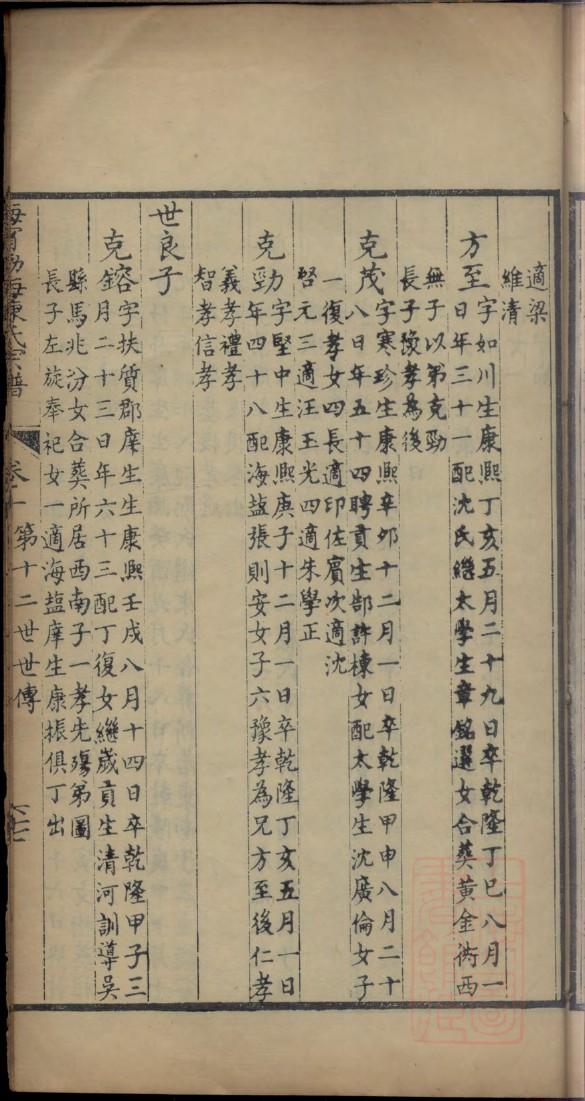 適梁
維清
方至字如川生康熙丁亥五月二十九日卒乾隆丁巳八月一
日年三十一配沈氏繼太學生章銘選女合葬黃金衖西
無子以弟克勁
長子豫孝為後
克茂字寒珍生康熙辛卯十二月一日卒乾隆甲申八月二十
八日年五十四聘貢生郜許棟女配太學生沈廣倫女子
一復孝女四長適印佐賓次適沈
啓元三適汪玉光四適朱學正
克勁字堅中生康熙庚子十二月一日卒乾隆丁亥五月一日
年四十八配海鹽張則安女子六豫孝為兄方至後仁孝
義孝禮孝
智孝信孝
世良子
克鎔字扶質郡庠生生康熙壬戌八月十四日卒乾隆甲子三
月二十三日年六十三配丁復女繼歲貢生清河訓導吳
縣馬兆汾女合葬所居西南子一孝先殤弟圖
長子左旋奉祀女一適海鹽庠生康振俱丁出
海寧渤海陳氏宗譜 卷十一 第十二世世傳 六七